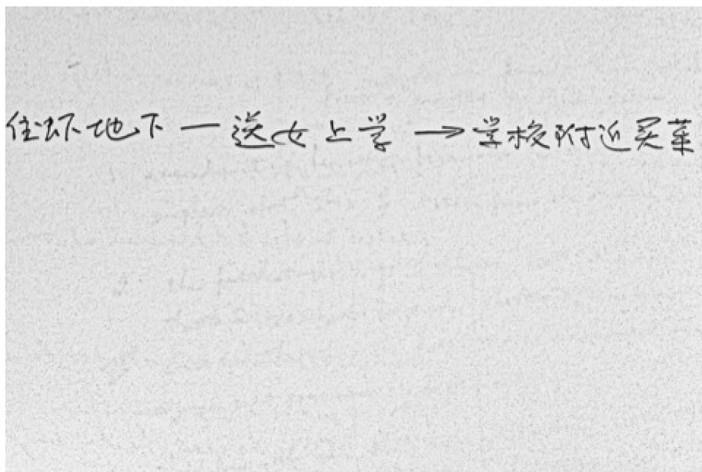 住环地下 — 送女上学 → 学校附近买菜